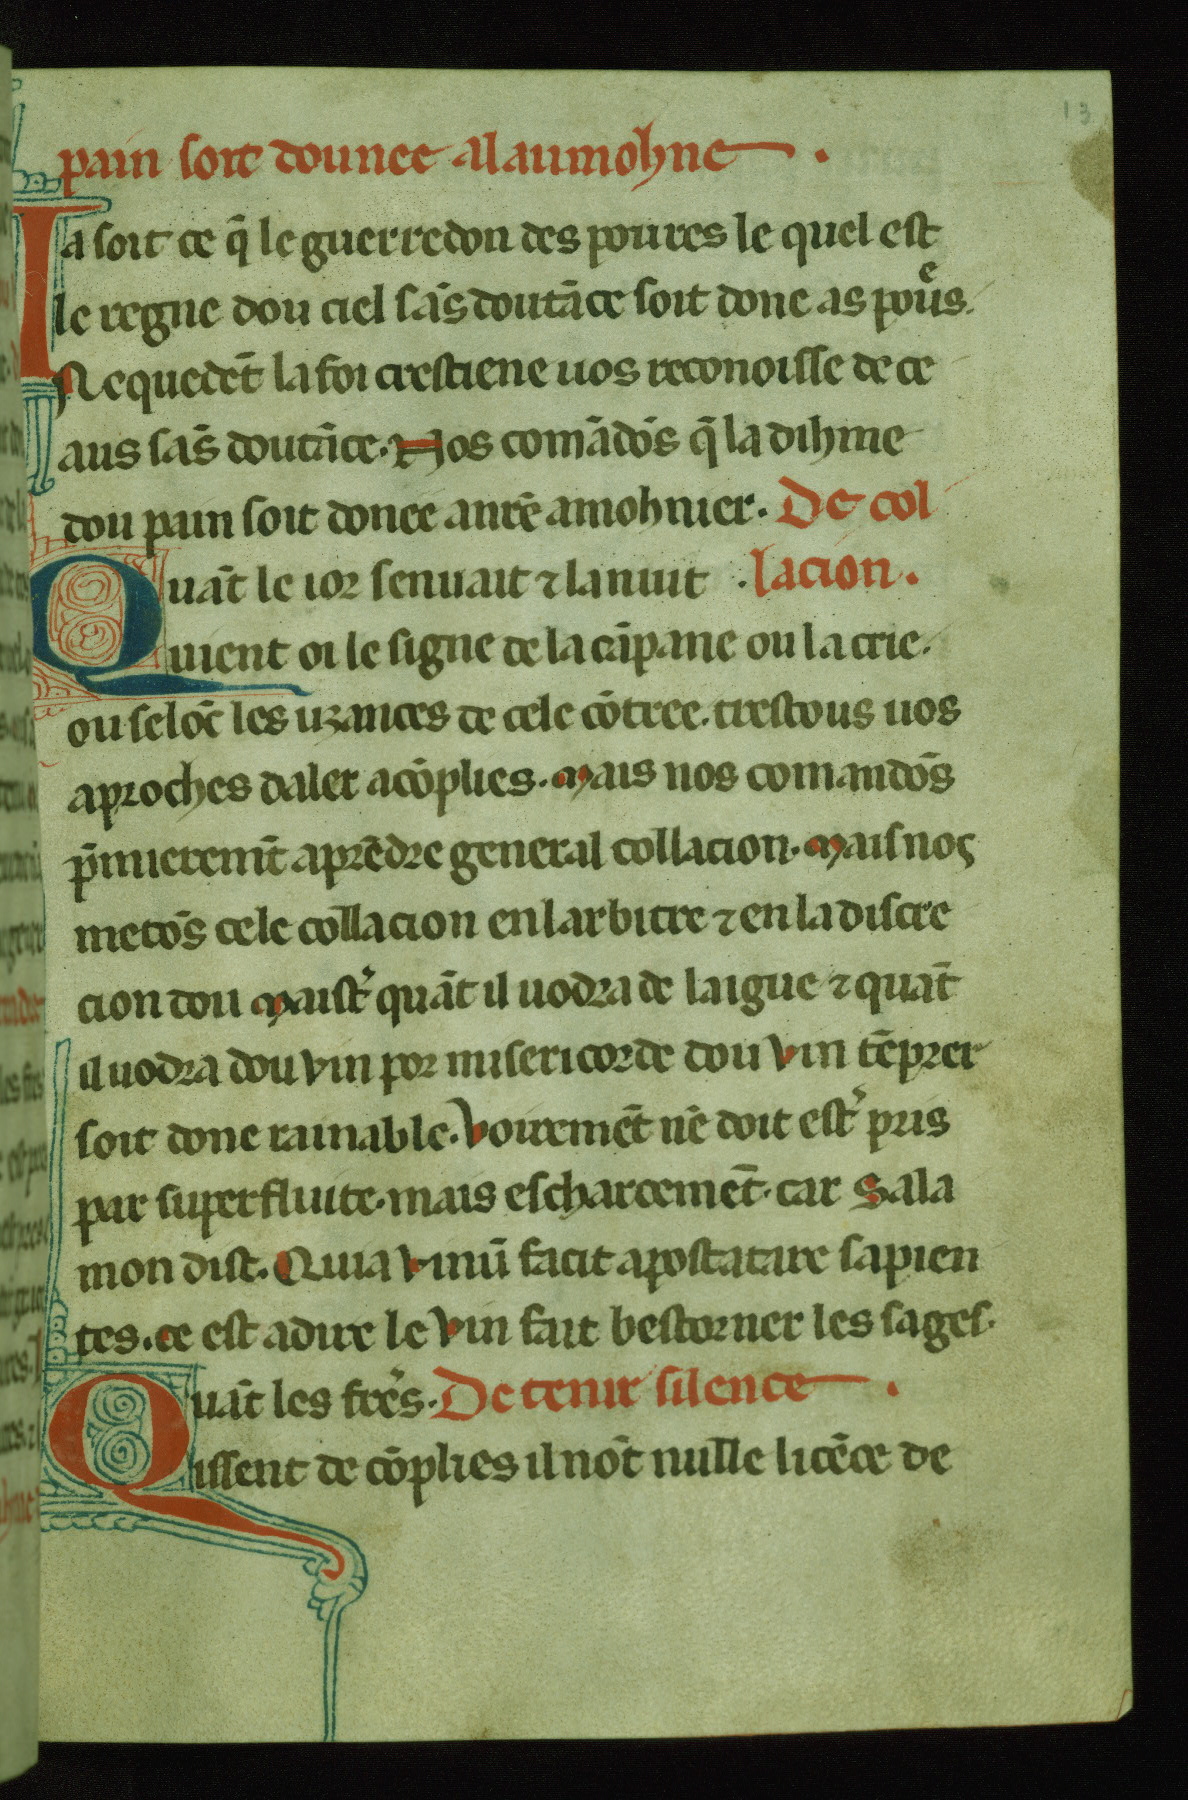 13
pain soit dounee al aumohne .
Ia soit ce q̄ le guerredon des poures le quel est
le regne dou ciel sās doutāce soit done as pouͤs.
Nequedēt la foi crestiene uos reconoisse de ce
aus sās doutāce. Nos comādōs q̄ la dihme
dou pain soit donee a nr̄e amohnier. De col
Quāt le ior senuait ⁊ la nuit .lacion.
uient oi le signe de la cāpane ou la crie.
ou selōc les uzances de cele cōtree. trestous uos
aproches daler a cōplies. Mais nos comandōs
p̄mieremēt a prēdre general collacion. Mais nos
metōs cele collacion en larbitre ⁊ en la discre
cion dou maist̓ quāt il uodra de laigue ⁊ quāt
il uodra dou vin por misericorde dou vin tēprer
soit done rainable. Voiremēt nē doit est̓ pris
par superfluite. mais escharcemēt. car Sala
mon dist. Quia vinū facit apostatare sapien
tes. ce est a dire le vin fait bestorner les sages.
Quāt les fre᷒s. De tenir silence .
issent de cōplies il nōt nulle licēce de